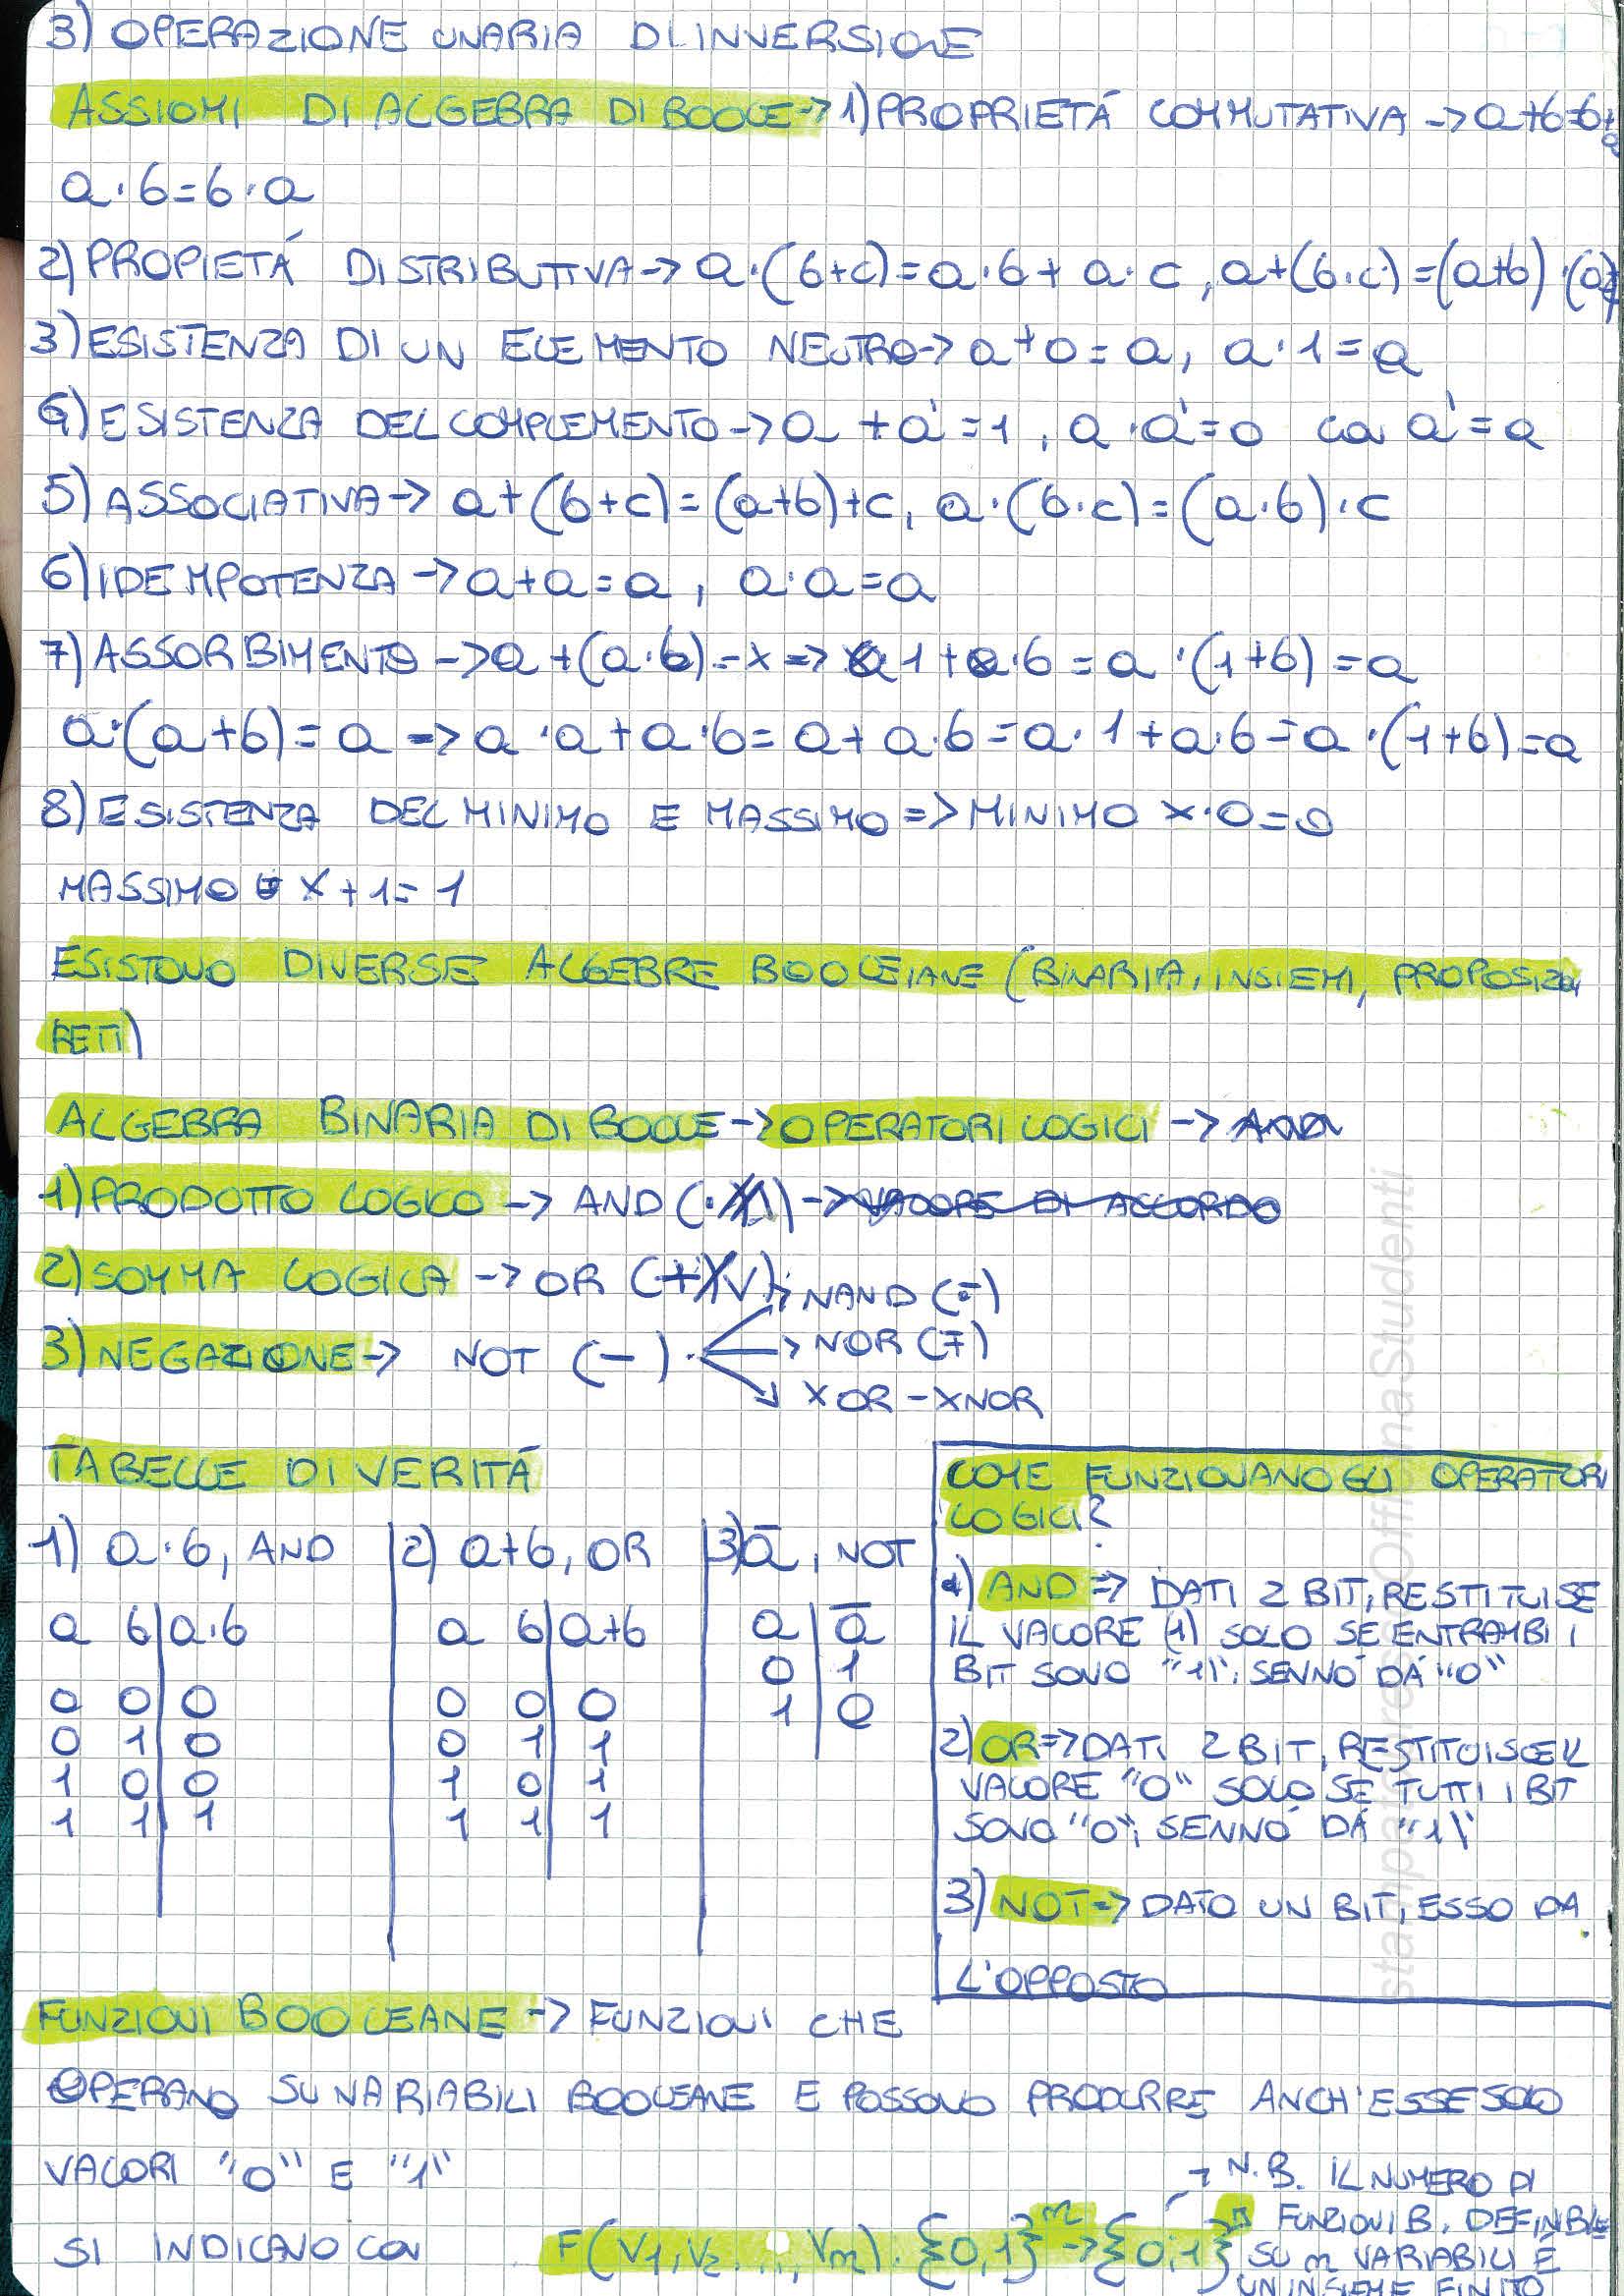 3) OPERAZIONE UNARIA DI INVERSIONE
ASSIOMI DI ALGEBRA DI BOOLE -> 1) PROPRIETÁ COMMUTATIVA -> a+b=b+a
a·b=b·a
2) PROPIETÁ DISTRIBUTIVA -> a·(b+c)=a·b+a·c, a+(b·c)=(a+b)·(a+
3) ESISTENZA DI UN ELEMENTO NEUTRO -> a+0=a, a·1=a
4) ESISTENZA DEL COMPLEMENTO -> a+a'=1, a·a'=0 con a'=a
5) ASSOCIATIVA -> a+(b+c)=(a+b)+c, a·(b·c)=(a·b)·c
6) IDEMPOTENZA -> a+a=a, a·a=a
7) ASSORBIMENTO -> a+(a·b)=x => a1+a·b=a·(1+b)=a
a·(a+b)=a => a·a+a·b=a+a·b=a·1+a·b=a·(1+b)=a
8) ESISTENZA DEL MINIMO E MASSIMO => MINIMO x·0=0
MASSIMO x+1=1
ESISTONO DIVERSE ALGEBRE BOOLEIANE (BINARIA, INSIEMI, PROPOSIZON,
RETI)
ALGEBRA BINARIA DI BOOLE -> OPERATORI LOGICI ->
1) PRODOTTO LOGICO -> AND (·/∧) -> VALORE DI ACCORDO
2) SOMMA LOGICA -> OR (+/∨)
NAND (·̄)
3) NEGAZIONE -> NOT (-)
-> NOR (+̄)
XOR - XNOR
TABELLE DI VERITÁ
1) a·b, AND 2) a+b, OR 3) ā, NOT
a b a·b a b a+b a ā
0 0 0 0 0 0 0 1
0 1 0 0 1 1 1 0
1 0 0 1 0 1
1 1 1 1 1 1
COME FUNZIONANO GLI OPERATORI
LOGICI?
1) AND => DATI 2 BIT, RESTITUISE
IL VALORE (1) SOLO SE ENTRAMBI I
BIT SONO "1", SENNÓ DÁ "0"
2) OR => DATI 2 BIT, RESTITUISCE IL
VALORE "0" SOLO SE TUTTI I BIT
SONO "0", SENNÓ DÁ "1"
3) NOT => DATO UN BIT, ESSO DA
L'OPPOSTO
FUNZIONI BOOLEANE -> FUNZIONI CHE
OPERANO SU VARIABILI BOOLEANE E POSSONO PRODURRE ANCH'ESSE SOLO
VALORI "0" E "1"
SI INDICANO CON F(V1,V2...,Vn). {0,1}ⁿ -> {0,1}
-> N.B. IL NUMERO DI
FUNZIONI B. DEFINIBILE
SU n VARIABILI É
UN INSIEME FINITO